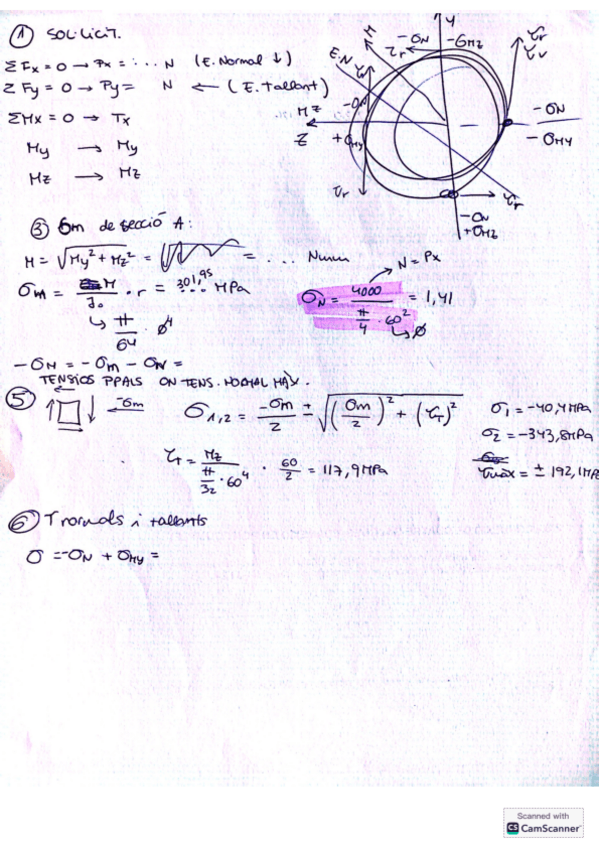 ① SOL·LICIT.
ΣFx = 0 → Px = ... N (E. Normal ↓)
ΣFy = 0 → Py = N ← (E. Tallant)
ΣMx = 0 → Tx
My → My
Mz → Mz
Y
-σN -σMz
τr
M
E.N
τr
τv
-σN
Mz
Z
+σMy
-σN
-σMy
τr
τr
-σN
+σMz
③ σm de secció A:
M = √(My² + Mz²) = = ... N·mm
N = Px
σm = M / I₀ · r = 301,95 MPa
π/64 · ø⁴
σN = 4000 / (π/4 · 60²) = 1,41
ø
-σN = -σm - σN =
TENSIOS PPALS ON TENS. NORMAL MÀX.
⑤ -σm
σ1,2 = -σm/2 ± √((σm/2)² + (τT)²)
σ1 = -40,4 MPa
σ2 = -343,8 MPa
τmàx = ± 192,1 MPa
τT = Mz / (π/32 · 60⁴) · 60/2 = 117,9 MPa
⑥ T normals i tallants
σ = -σN + σMy =
Scanned with
CS CamScanner